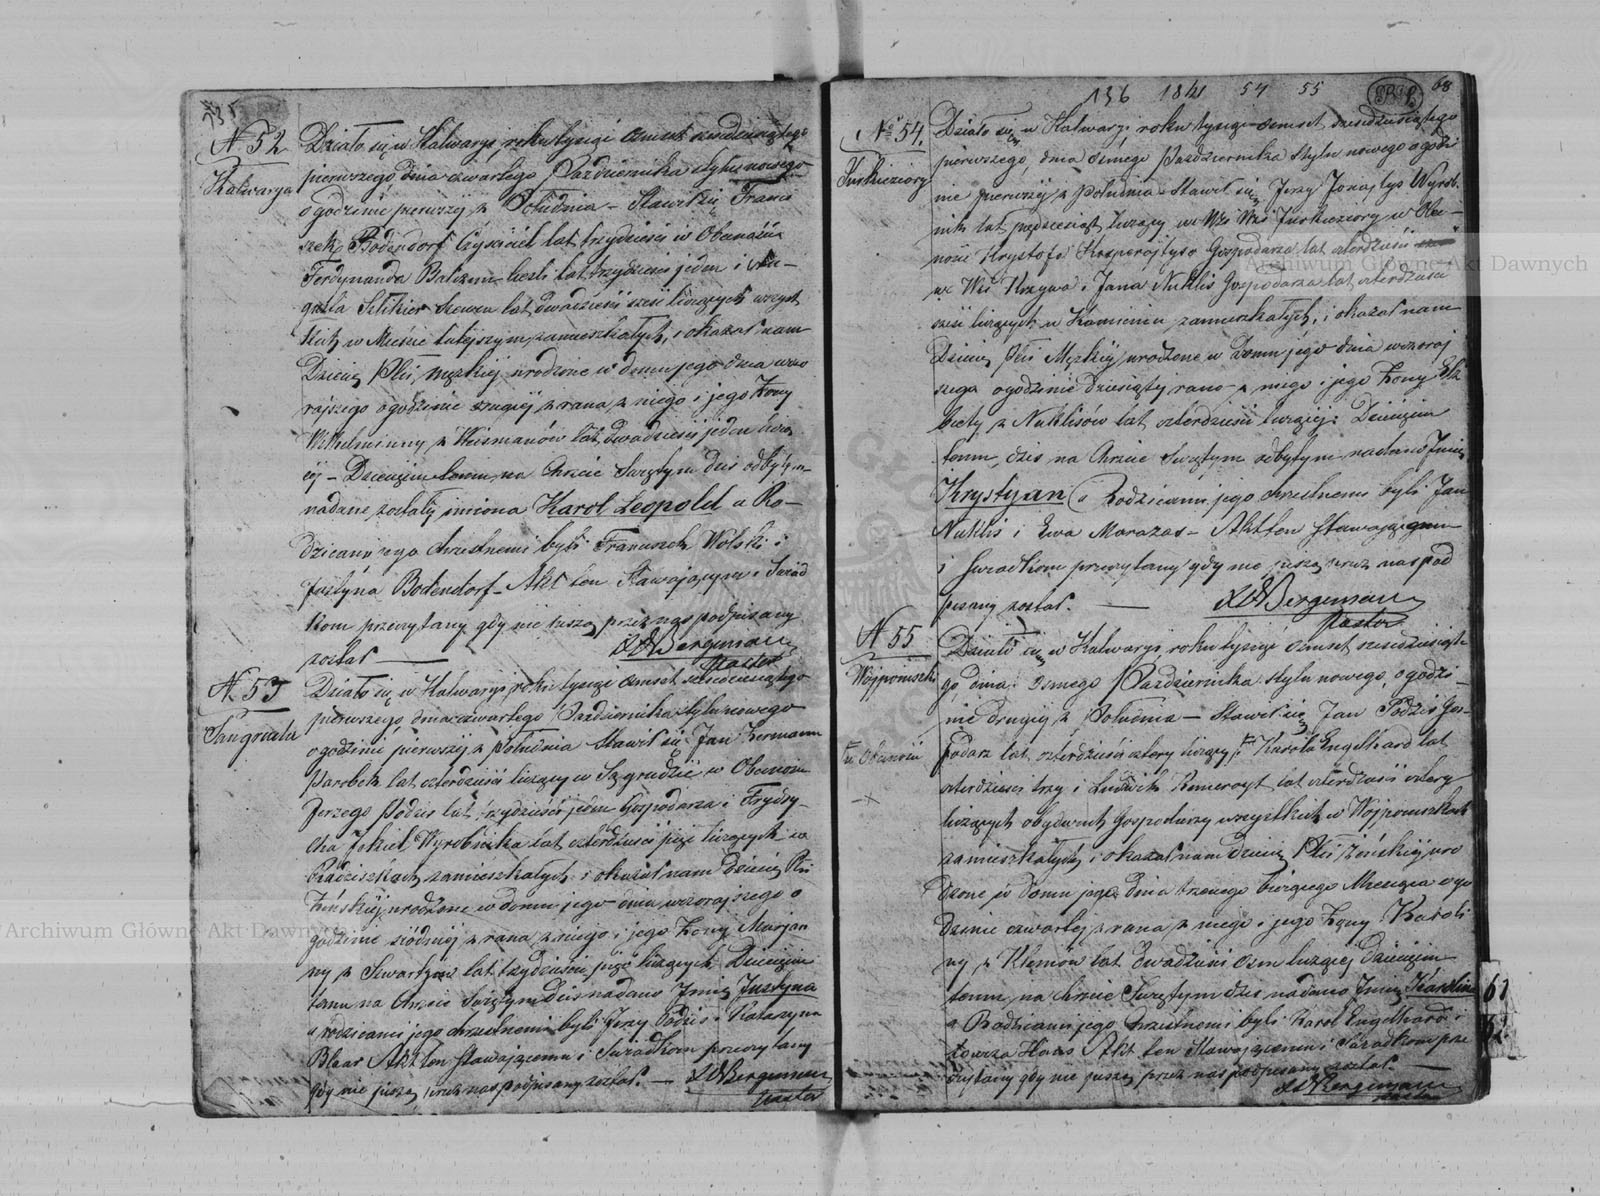 135
N. 52
Kalwarya
Działo się w Kalwaryi, roku tysiąc ośmset sześćdziesiątego
pierwszego, dnia czwartego Października stylu nowego
o godzinie pierwszéj z Południa – Stawił się Franci
szek Bodendorf Czyściciel lat trzydzieści w Obecności
Ferdynanda lat trzydzieści jeden i Au–
gusta Szewca lat dwadzieścia sześć liczących wszyst
kich w Mieście tutejszym zamieszkałych, i okazał nam
Dziecię Płci męzkiéj urodzone w domu jego dnia wczo
rajszego o godzinie drugiéj z rana z niego i jego Żony
Wilhelminy z lat dwadzieścia jeden liczą
céj – Dziecięciu temu na Chrzcie Świętym dziś odbytym
nadane zostały imiona Karol Leopold a Ro–
dzicami jego chrzestnemi byli Franciszek Wolski i
Justyna Bodendorf – Akt ten Stawającym i Świad
kom przeczytany gdy nie piszą przez nas podpisany
został — Bergemann
Pastor
N. 53
Działo się w Kalwaryi, roku tysiąc ośmset sześćdziesiątego
pierwszego, dnia czwartego Października stylu nowego
o godzinie pierwszéj z południa Stawił się Jan Hermann
Parobek lat czterdzieści liczący w w Obecności
Jerzego Podzis lat trzydzieści jeden Gospodarza i Frydry–
cha Jekiel Wyrobnika lat czterdzieści pięć liczących w
zamieszkałych i okazał nam Dziecię Płci
Żeńskiéj urodzone w domu jego dnia wczorajszego o
godzinie siódméj z rana z niego i jego Żony Marjan
ny z lat trzydzieści pięć liczącéj Dziecięciu
temu na Chrzcie Świętym dziś nadano Imię Justyna
a rodzicami jego chrzestnemi byli Jerzy Podzis i Katarzyna
Blaar Akt ten Stawającemu i Świadkom przeczytany
gdy nie piszą przez nas podpisany został. — Bergemann
Pastor
136 1841 54 55 68
No 54.
Działo się w Kalwaryi roku tysiąc ośmset sześćdziesiątego
pierwszego, dnia ósmego Października stylu nowego o godzi
nie pierwszéj z południa Stawił się Jerzy Jonajtys Wyrob
nik lat pięćdziesiąt liczący we Wsi w Obe–
cności Krystofa Kasperajtysa Gospodarza lat czterdzieści
we Wsi Krzywa i Jana Nuklis Gospodarza lat czterdzieści
sześć liczących w Kamieniu zamieszkałych, i okazał nam
Dziecię płci Męzkiéj urodzone w Domu jego dnia wczoraj
szego o godzinie dziesiątéj rano z niego i jego Żony Elż
biety z Nuklisów lat czterdzieści liczącéj: Dziecięciu
temu, dziś na Chrzcie Świętym odbytym nadano Imię
Krystyan a Rodzicami jego chrzestnemi byli Jan
Nuklis i Ewa Marazas – Akt ten Stawającemu
i Świadkom przeczytany gdy nie piszą przez nas pod
pisany został. — Bergemann
Pastor
N 55
Działo się w Kalwaryi, roku tysiąc ośmset sześćdziesiąte
go dnia ósmego Października stylu nowego, o godzi–
nie drugiéj z południa – Stawił się Jan Podzis Gos–
podarz lat czterdzieści cztery liczący Karola Engelhard lat
w Obecności
czterdzieści trzy i Ludwik lat czterdzieści cztery
liczących obydwóch Gospodarzy wszystkich w Wojponiszkach
zamieszkałych, i okazał nam dziecię Płci Żeńskiéj uro
dzone w domu jego dnia trzeciego bieżącego Miesiąca o go
dzinie czwartéj z rana z niego i jego Żony Karoli
ny z Klemów lat dwadzieścia ośm liczącéj Dziecięciu
temu, na Chrzcie Świętym dziś nadano Imię Karolina
a Rodzicami jego Chrzestnemi byli Karol Engelhard i
Akt ten Stawającemu i Świadkom prze
czytany gdy nie piszą przez nas podpisany został. —
Bergemann
Pastor
Archiwum Główne Akt Dawnych
Archiwum Główne Akt Dawnych